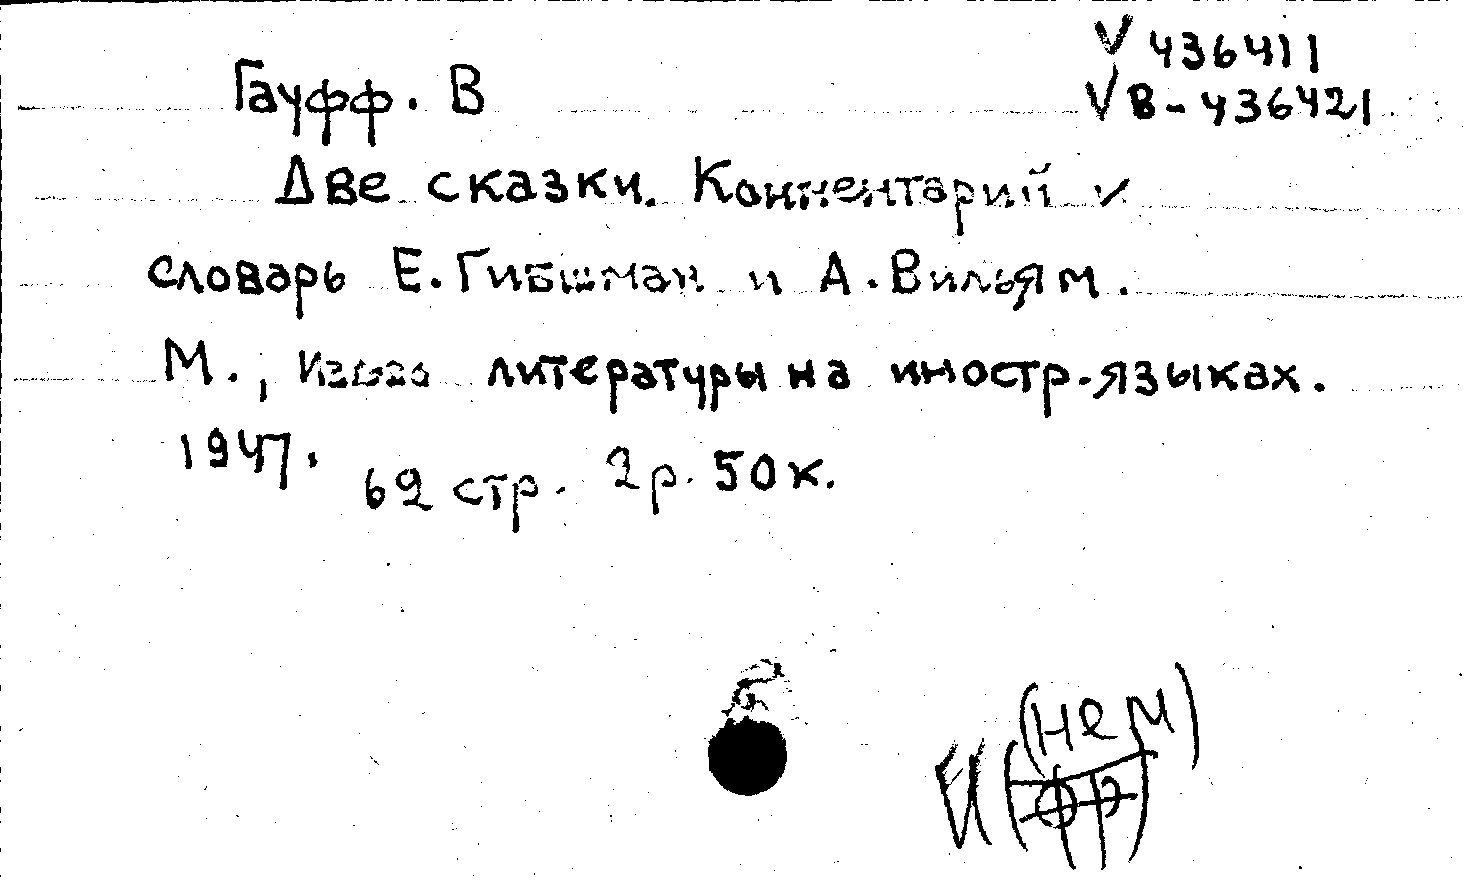 V 436411
V В-436421
Гауфф. В
Две сказки. Комментарий и
словарь Е. Гибшман и А. Вильям.
М., Изд-во литературы на иностр. языках.
1947.
62 стр. 2 р. 50 к.
(нем)
И (фр)